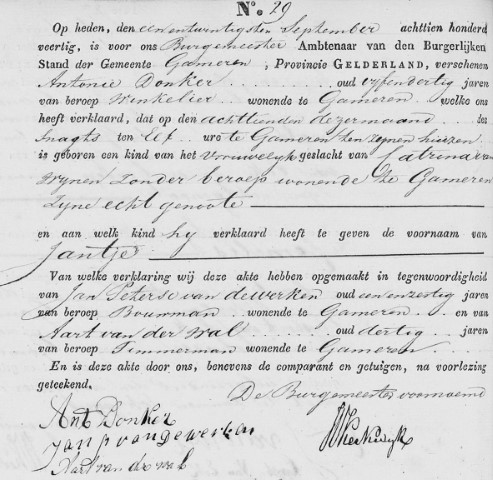 No. 29
Op heden, den eenentwintigsten September achttien honderd
veertig, is voor ons Burgemeester Ambtenaar van den Burgerlijken
Stand der Gemeente Gameren, Provincie GELDERLAND, verschenen
Antonie Donker oud vyfendertig jaren
van beroep Winkelier wonende te Gameren welke ons
heeft verklaard, dat op den achttienden dezer maand des
snagts ten Elf ure te Gameren ten zynen huizen
is geboren een kind van het Vrouwelyk geslacht van Catrina van
Wynen Zonder beroep wonende te Gameren
Zyne echt genoote
en aan welk kind hy verklaard heeft te geven de voornaam van
Jantje
Van welke verklaring wij deze akte hebben opgemaakt in tegenwoordigheid
van Jan Peterse van dewerken oud eenenzestig jaren
van beroep Bouwman wonende te Gameren en van
Aart van der Wal oud dertig jaren
van beroep Timmerman wonende te Gameren
En is deze akte door ons, benevens de comparant en getuigen, na voorlezing
geteekend.
De Burgemeester voornoemd
Ant Donker
Jan P van de werken
Aart van de wal